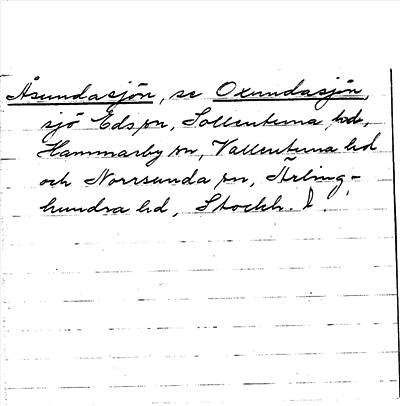 Åsundasjön, se Oxundasjön,
sjö Eds sn, Sollentuna hd,
Hammarby sn, Vallentuna hd
och Norrsunda sn, Ärling-
hundra hd, Stockh. l.